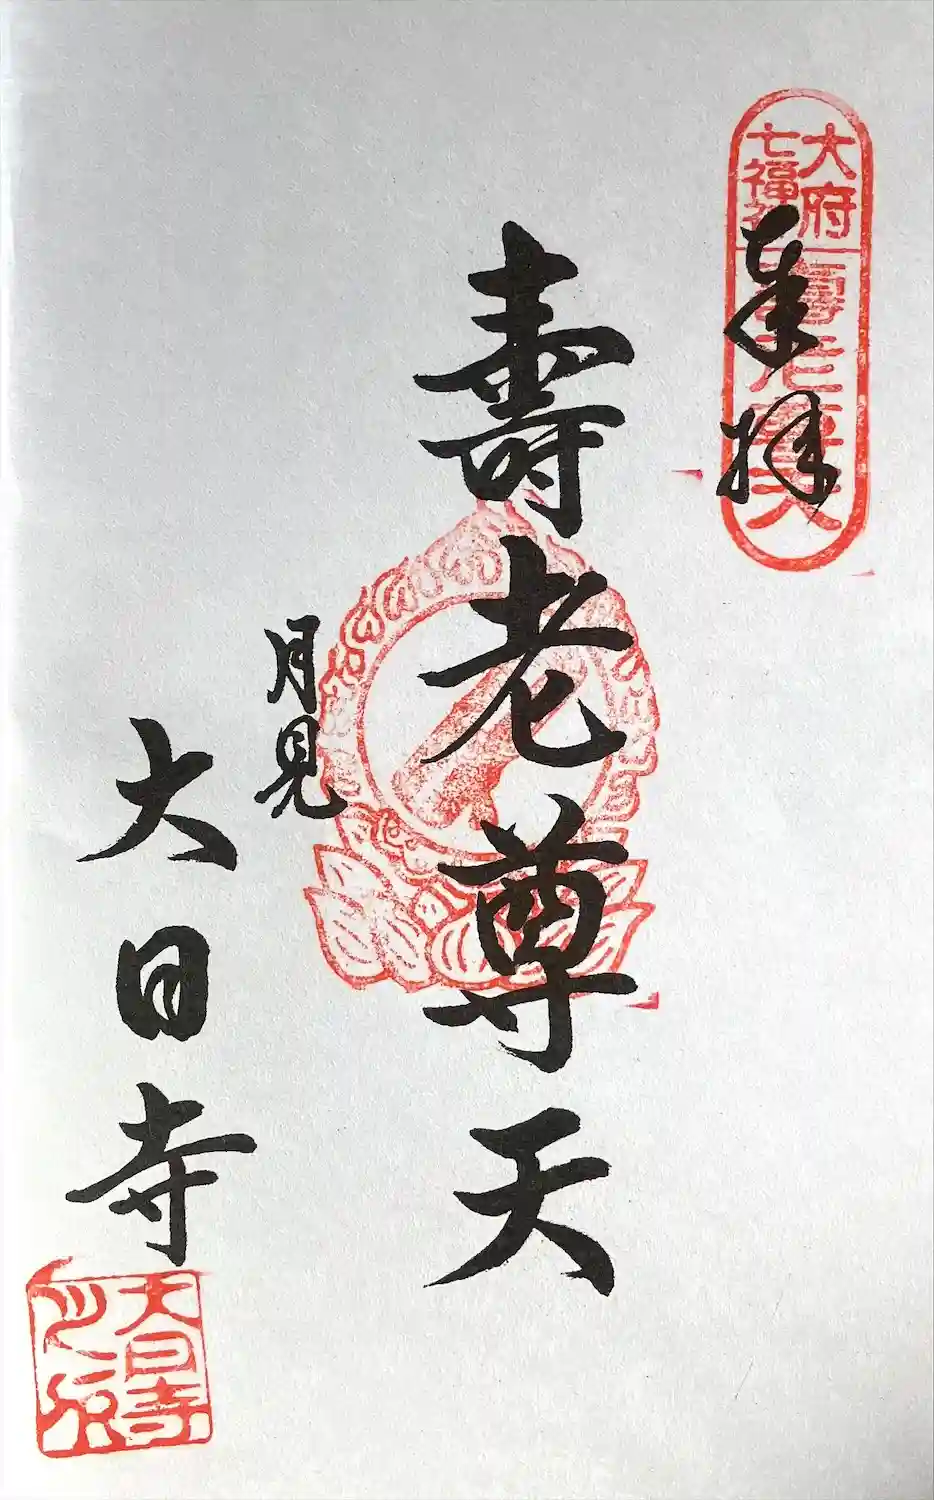 大府
七福神
壽老尊天
奉拝
壽老尊天
月見
大日寺
大日寺